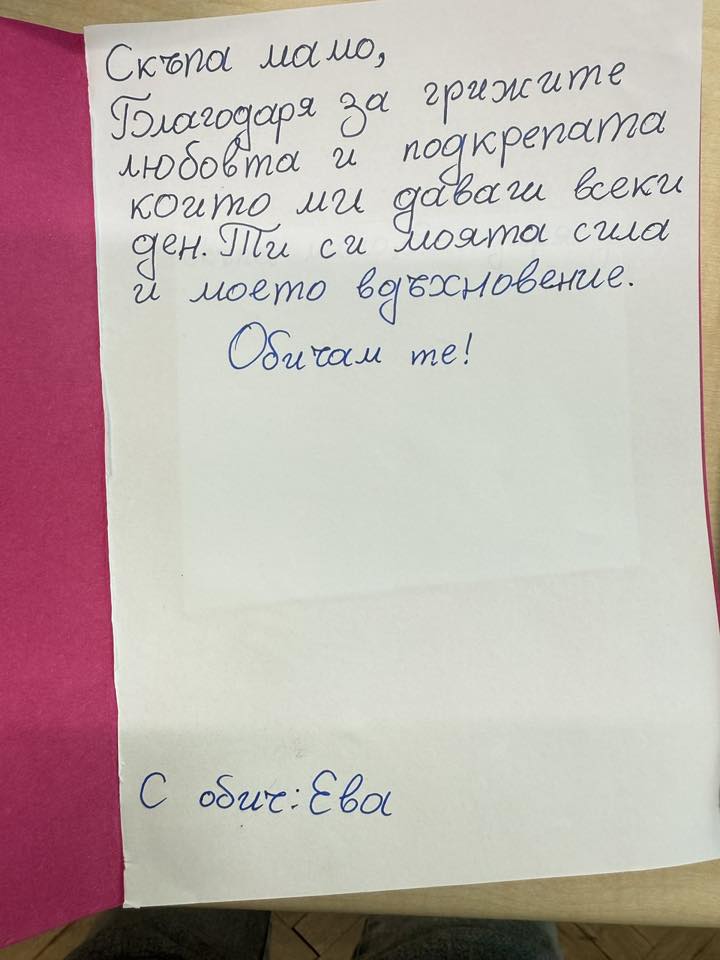 Скъпа мамо,
Благодаря за грижите
любовта и подкрепата
които ми даваш всеки
ден. Ти си моята сила
и моето вдъхновение.
Обичам те!
С обич: Ева